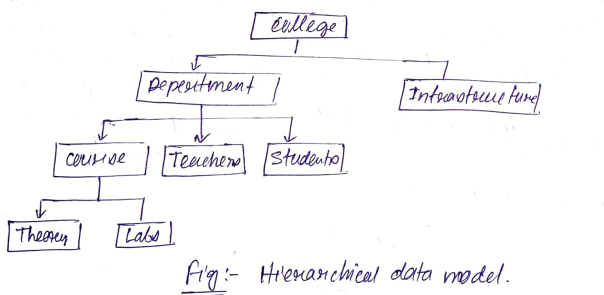 College
Department
Infrastructure
Course
Teachers
Students
Theory
Labs
Fig:- Hierarchical data model.